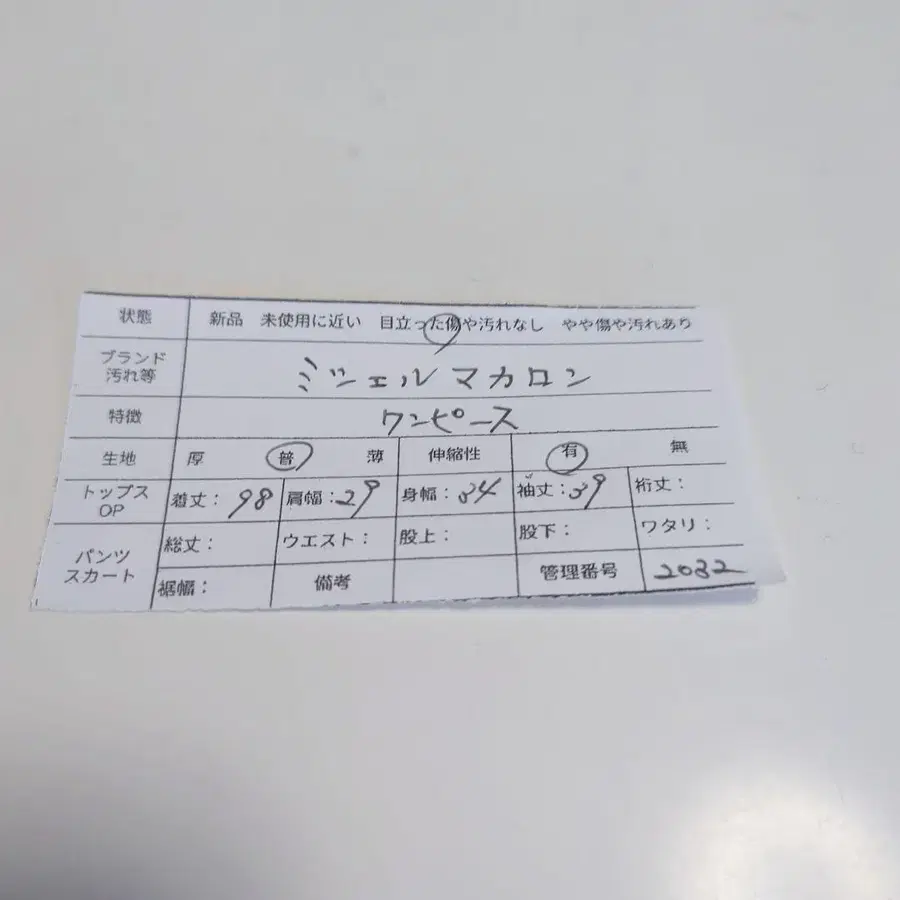 状態 新品 未使用に近い 目立った傷や汚れなし やや傷や汚れあり
ブランド
汚れ等 ミシェルマカロン
特徴 ワンピース
生地 厚 普 薄 伸縮性 有 無
トップス
OP 着丈：98 肩幅：29 身幅：34 袖丈：39 裄丈：
パンツ
スカート 総丈： ウエスト： 股上： 股下： ワタリ：
裾幅： 備考 管理番号 2032